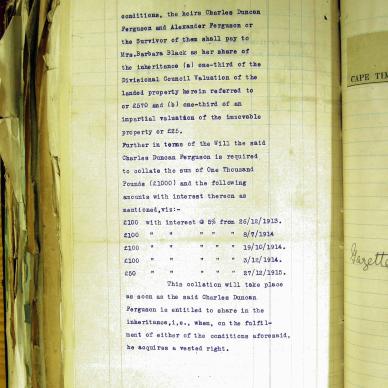 conditions, the heirs Charles Duncan
Ferguson and Alexander Ferguson or
the Survivor of them shall pay to
Mrs.Barbara Black as her share of
the inheritance (a) one-third of the
Divisional Council Valuation of the
landed property herein referred to
or £570 and (b) one-third of an
impartial valuation of the imnovable
property or £25.
Further in terms of the Will the said
Charles Duncan Ferguson is required
to collate the sum of One Thousand
Pounds (£1000) and the following
amounts with interest thereon as
mentioned,viz:-
£100 with interest @ 5% from 26/12/1913.
£100 " " " " " 8/7/1914
£100 " " " " " 19/10/1914.
£100 " " " " " 3/12/1914.
£50 " " " " " 27/12/1915.
This collation will take place
as soon as the said Charles Duncan
Ferguson is entitled to share in the
inheritance,i.e., when, on the fulfil-
ment of either of the conditions aforesaid,
he acquires a vested right.
CAPE TIM
Gazette